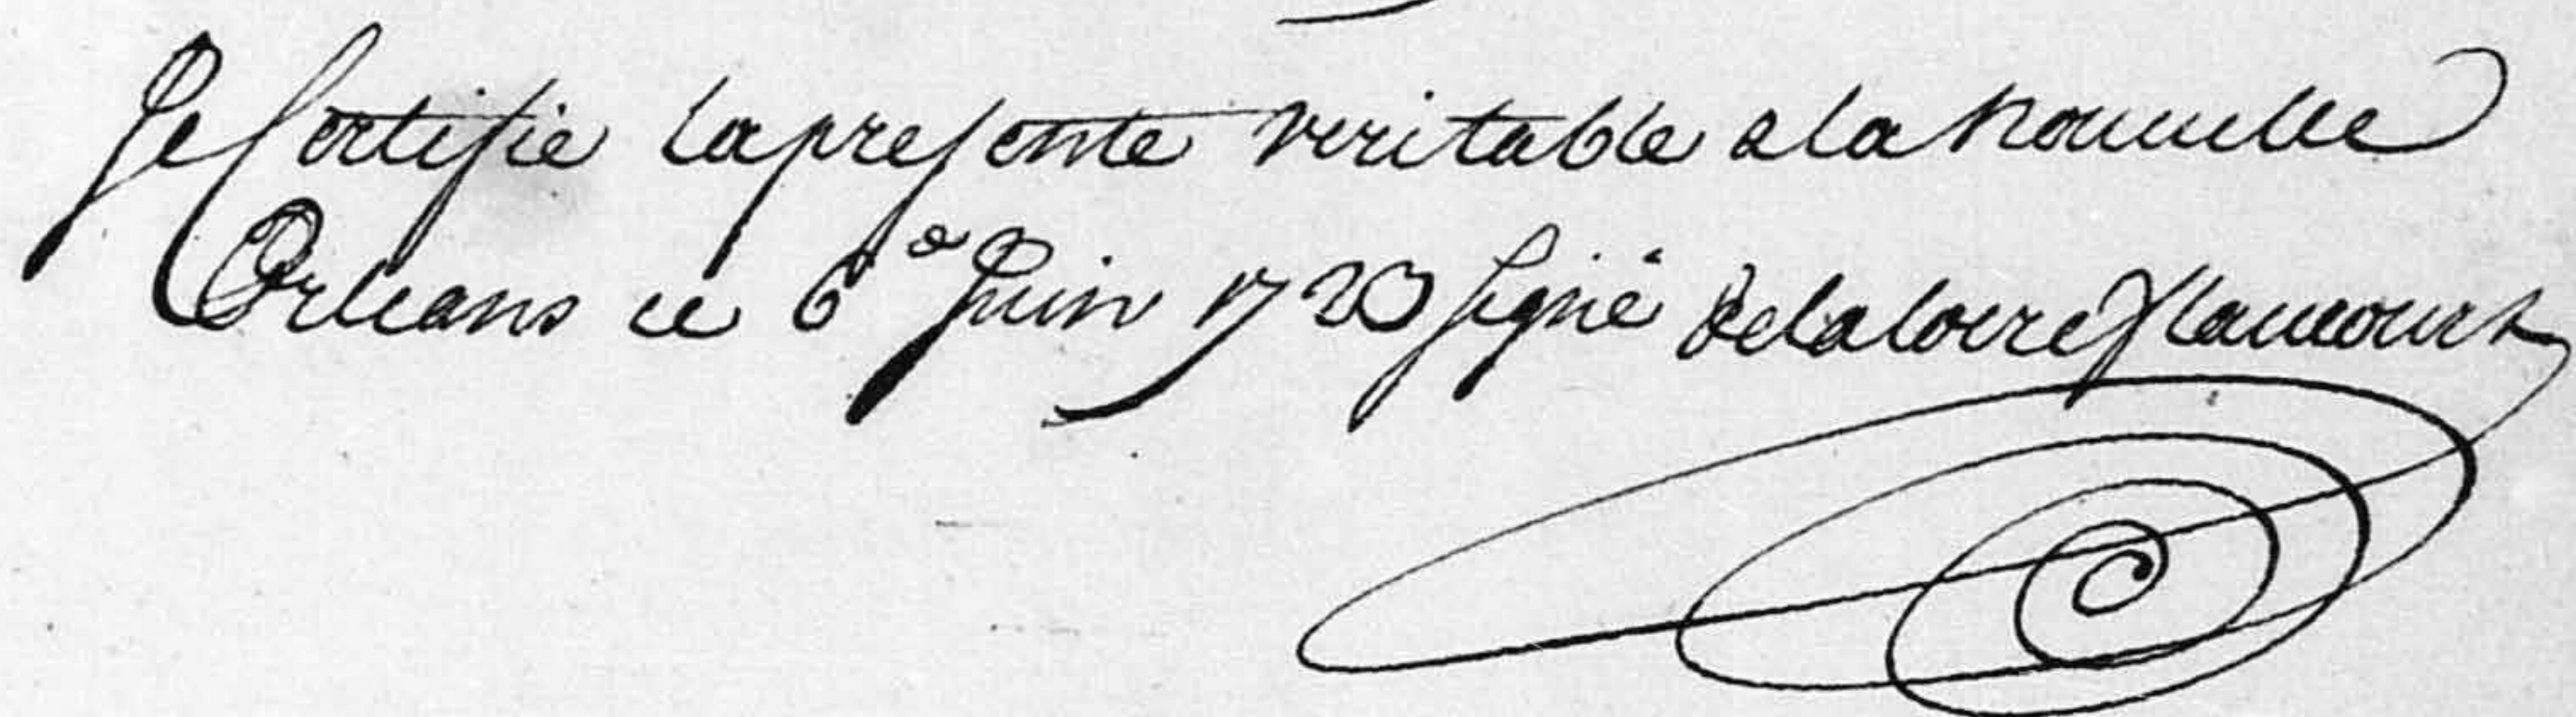 Je Certifie la presente veritable a la Nouuelle
Orleans ce 6e Juin 1723 signé Delaloire flaucourt